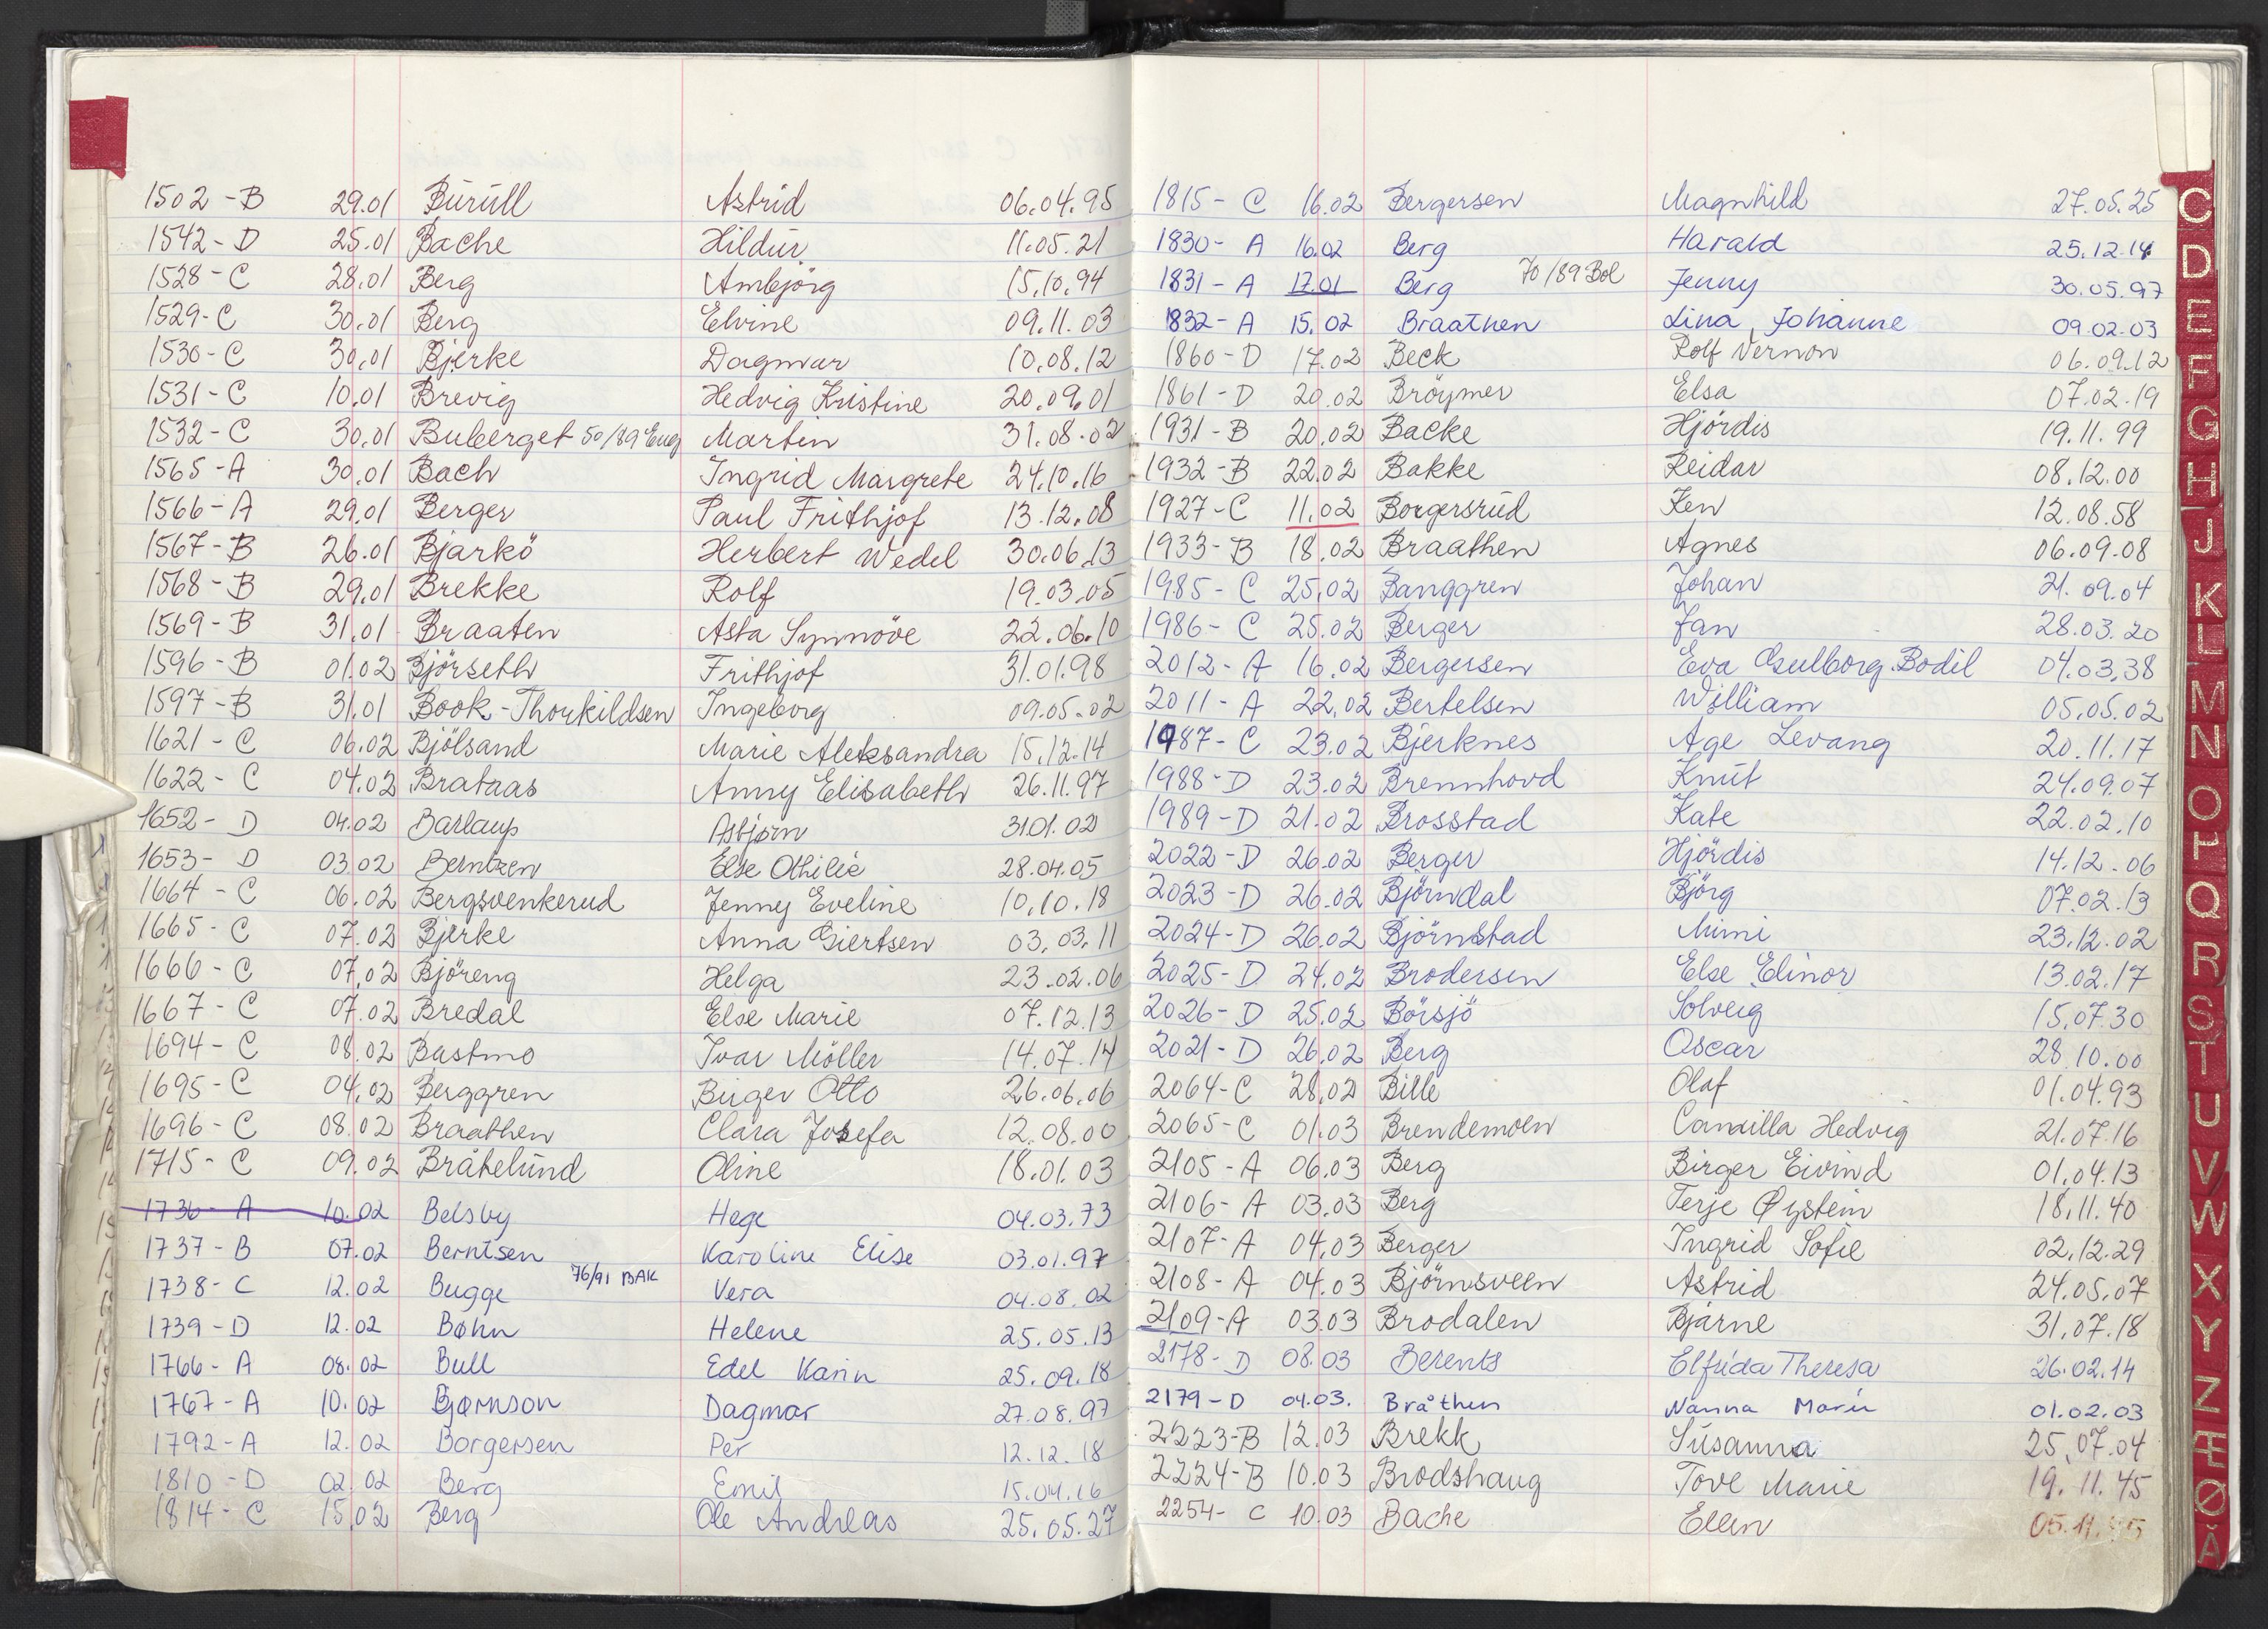 1502-B 29.01 Burull Astrid 06.04.95
1542-D 25.01 Bache Hildur 11.05.21
1528-C 28.01 Berg Ambjörg 15.10.94
1529-C 30.01 Berg Elvine 09.11.03
1530-C 30.01 Bjerke Dagmar 10.08.12
1531-C 10.01 Brevig Hedvig Kristine 20.09.01
1532-C 30.01 Buberget 50/89 Eug Martin 31.08.02
1565-A 30.01 Bach Ingrid Margrete 24.10.16
1566-A 29.01 Berger Paul Frithjof 13.12.08
1567-B 26.01 Bjarkö Herbert Wedel 30.06.13
1568-B 29.01 Brekke Rolf 19.03.05
1569-B 31.01 Braaten Asta Synnöve 22.06.10
1596-B 01.02 Bjørseth Frithjof 31.01.98
1597-B 31.01 Book-Thorkildsen Ingeborg 09.05.02
1621-C 06.02 Bjölsand Marie Aleksandra 15.12.14
1622-C 04.02 Brataas Anny Elisabeth 26.11.97
1652-D 04.02 Barlaup Asbjørn 31.01.02
1653-D 03.02 Berntzen Else Othilie 28.04.05
1664-C 06.02 Bergsvenkerud Jenny Eveline 10.10.18
1665-C 07.02 Bjerke Anna Giertsen 03.03.11
1666-C 07.02 Björeng Helga 23.02.06
1667-C 07.02 Bredal Else Marie 07.12.13
1694-C 08.02 Bastmo Ivar Möller 14.07.14
1695-C 04.02 Berggren Birger Otto 26.06.06
1696-C 08.02 Braathen Clara Josefa 12.08.00
1715-C 09.02 Bråtelund Oline 18.01.03
1736-A 10.02 Belsby Hege 04.03.73
1737-B 07.02 Berntsen Karoline Elise 03.01.97
1738-C 12.02 Bugge 76/91 BAK Vera 04.08.02
1739-D 12.02 Bøhn Helene 25.05.13
1766-A 08.02 Bull Edel Karin 25.09.18
1767-A 10.02 Bjørnson Dagmar 27.08.97
1792-A 12.02 Borgersen Per 12.12.18
1810-D 02.02 Berg Emil 15.04.16
1814-C 15.02 Berg Ole Andreas 25.05.27
1815-C 16.02 Bergersen Magnhild 27.05.25
1830-A 16.02 Berg Harald 25.12.14
1831-A 17.01 Berg 70/89 Bol Jenny 30.05.97
1832-A 15.02 Braathen Lina Johanne 09.02.03
1860-D 17.02 Beck Rolf Vernon 06.09.12
1861-D 20.02 Bröymer Elsa 07.02.19
1931-B 20.02 Backe Hjördis 19.11.99
1932-B 22.02 Bakke Reidar 08.12.00
1927-C 11.02 Borgersrud Ken 12.08.58
1933-B 18.02 Braathen Agnes 06.09.08
1985-C 25.02 Banggren Johan 21.09.04
1986-C 25.02 Berger Jan 28.03.20
2012-A 16.02 Bergersen Eva Gulborg Bodil 04.03.38
2011-A 22.02 Bertelsen William 05.05.02
1987-C 23.02 Bjerknes Age Levang 20.11.17
1988-D 23.02 Brennhovd Knut 24.09.07
1989-D 21.02 Brosstad Kate 22.02.10
2022-D 26.02 Berger Hjördis 14.12.06
2023-D 26.02 Björndal Björg 07.02.13
2024-D 26.02 Björnstad Mimi 23.12.02
2025-D 24.02 Brodersen Else Elinor 13.02.17
2026-D 25.02 Börsjö Solveig 15.07.30
2021-D 26.02 Berg Oscar 28.10.00
2064-C 28.02 Bille Olaf 01.04.93
2065-C 01.03 Brendemoen Camilla Hedvig 21.07.16
2105-A 06.03 Berg Birger Eivind 01.04.13
2106-A 03.03 Berg Terje Øystein 18.11.40
2107-A 04.03 Berger Ingrid Sofie 02.12.29
2108-A 04.03 Björnsveen Astrid 24.05.07
2109-A 03.03 Brodalen Bjarne 31.07.18
2178-D 08.03 Berents Elfrida Theresa 26.02.14
2179-D 04.03. Bråthen Nanna Marie 01.02.03
2223-B 12.03 Brekk Susanna 25.07.04
2224-B 10.03 Brodshaug Tove Marie 19.11.45
2254-C 10.03 Bache Ellen 05.11.
C
D
E
F
G
H
J
K
L
M
N
O
P
Q
R
S
T
U
V
W
X
Y
Z
Æ
Ø
Å